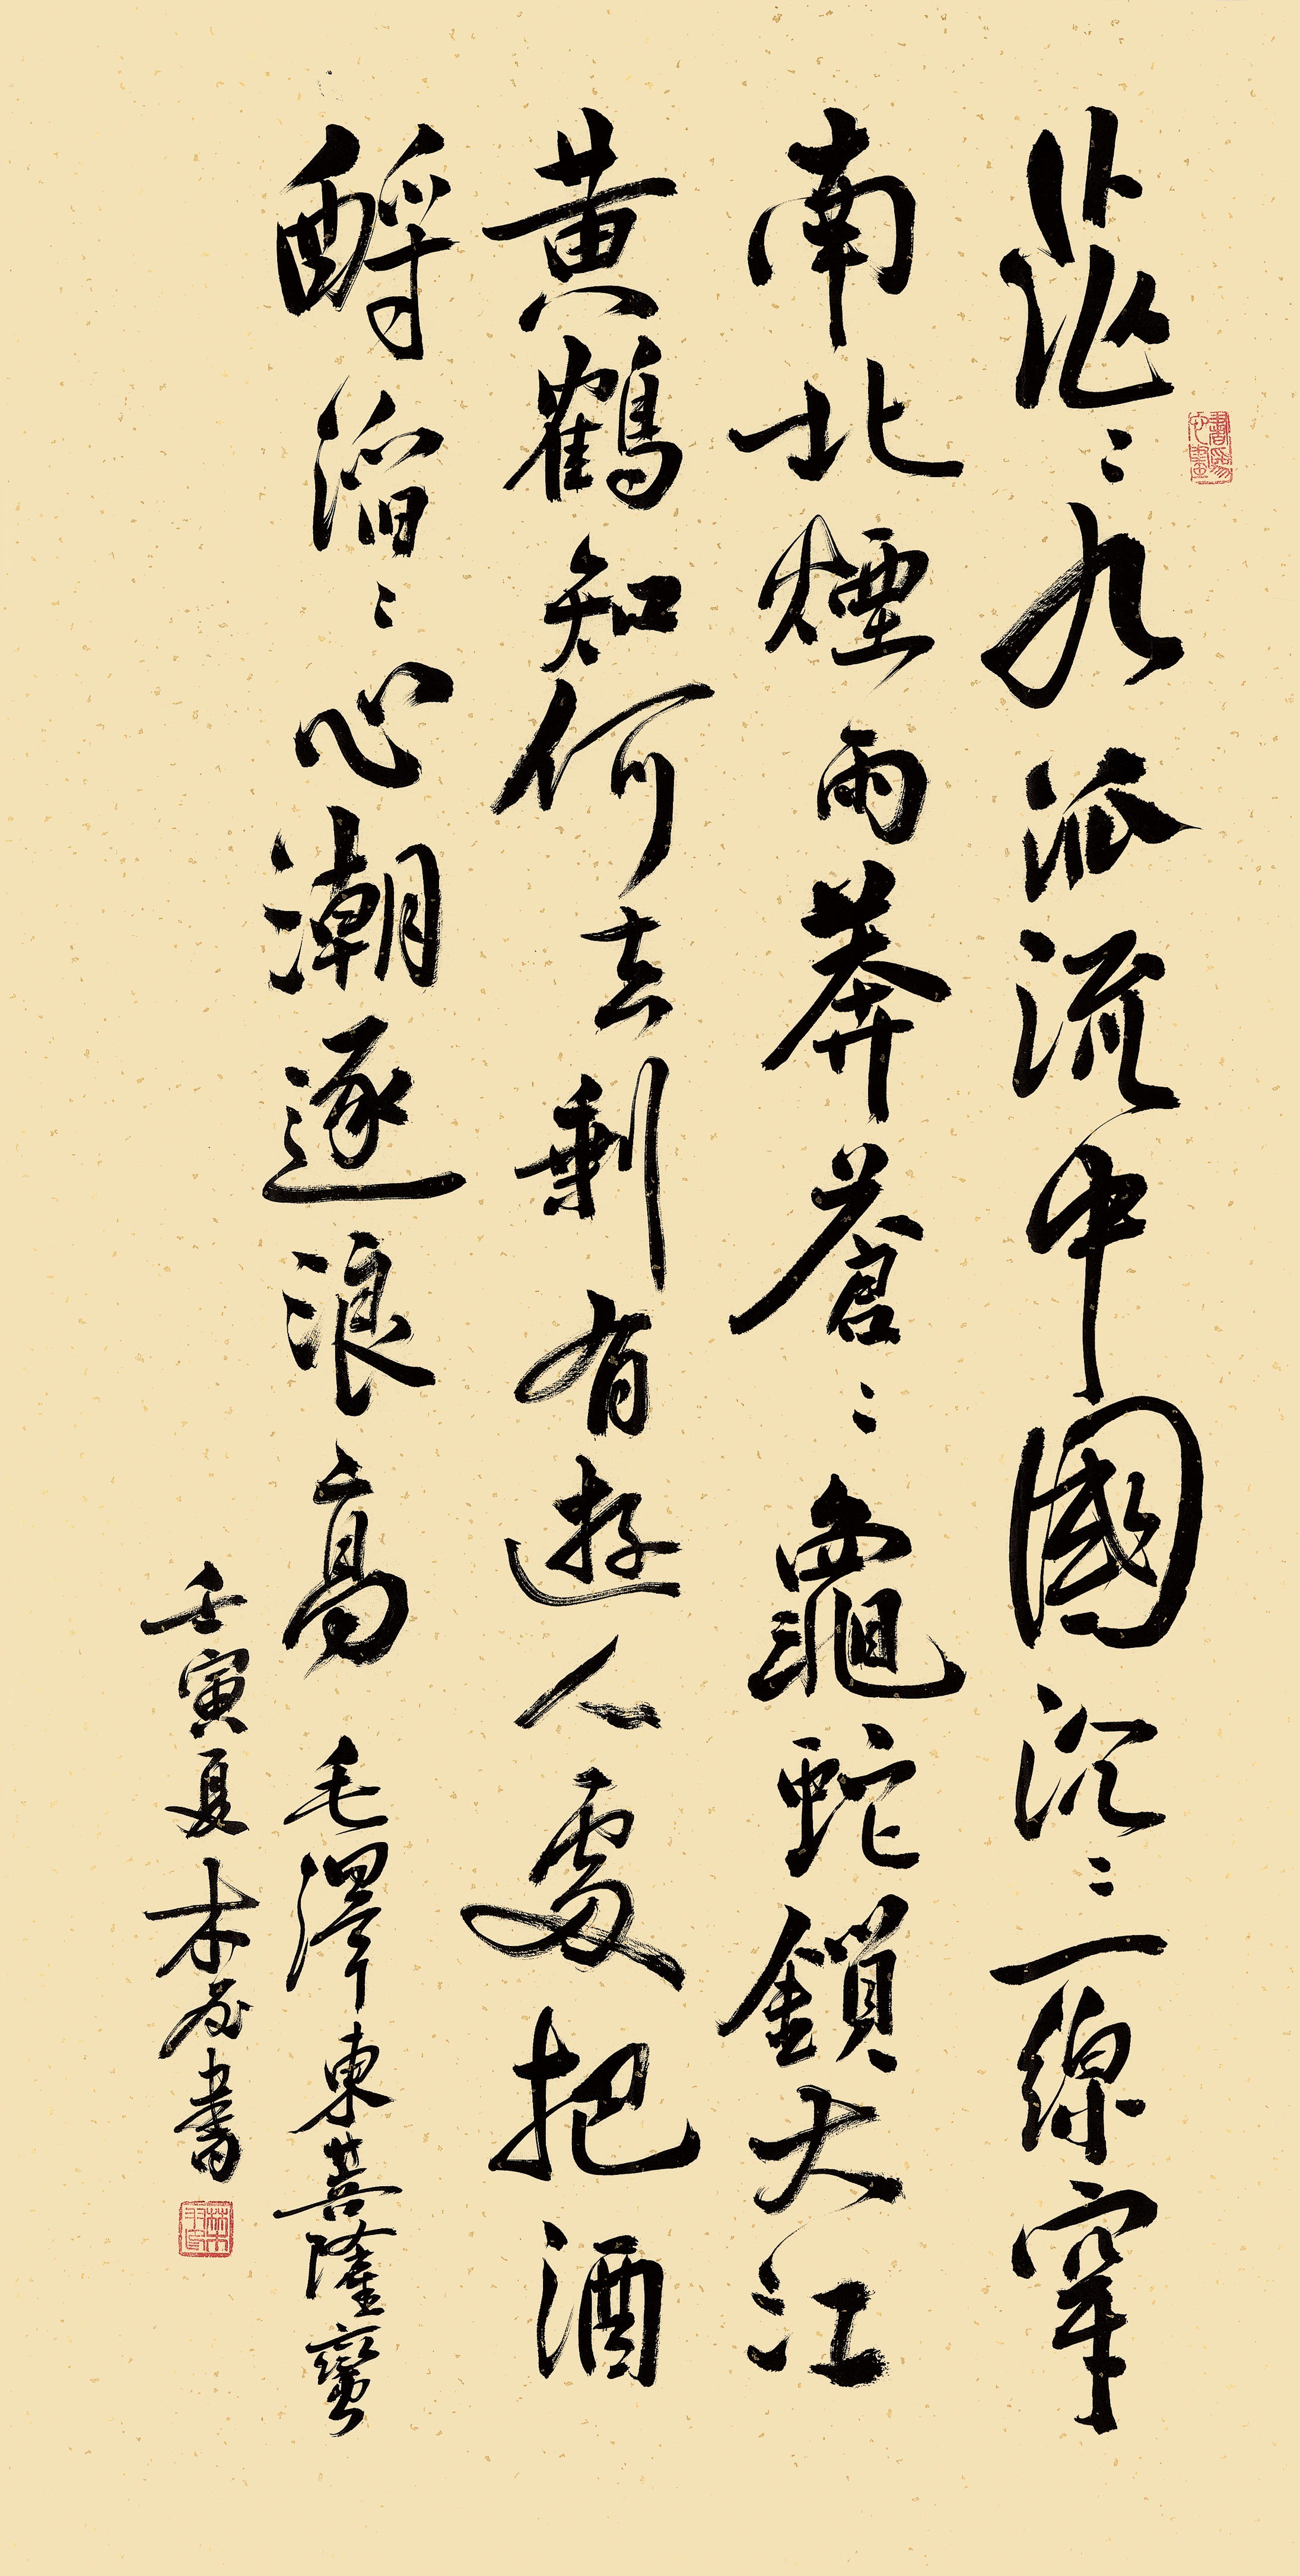 茫〻九派流中國沉〻一線穿
南北煙雨莽蒼〻龜蛇鎖大江
黄鶴知何去剩有遊人處把酒
酹滔〻心潮逐浪高 毛澤東菩薩蠻
壬寅夏木書
書為心畫